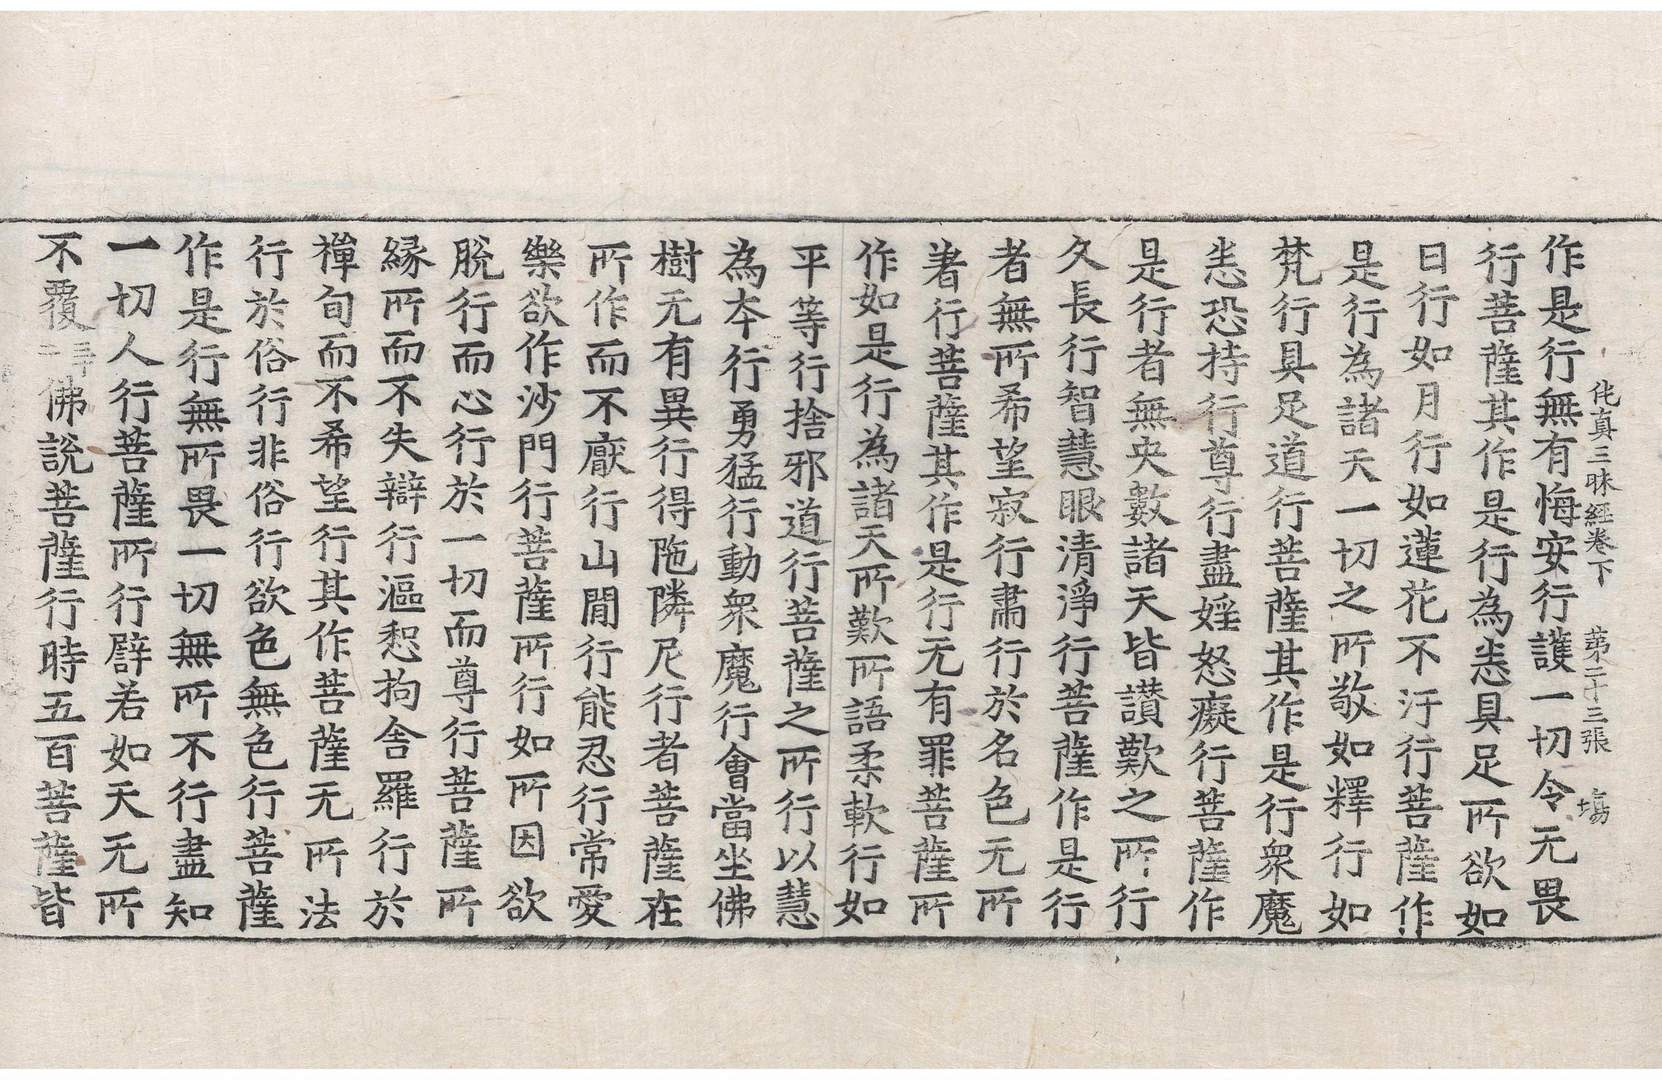 作是行無有悔安行護一切令无畏
行菩薩其作是行為恙具足所欲如
日行如月行如蓮花不汙行菩薩作
是行為諸天一切之所敬如釋行如
梵行具足道行菩薩其作是行衆魔
恙恐持行尊行盡婬怒癡行菩薩作
是行者無央數諸天皆讃歎之所行
久長行智慧眼清淨行菩薩作是行
者無所希望寂行肅行於名色无所
著行菩薩其作是行无有罪菩薩所
作如是行為諸天所歎所語柔軟行如
平等行捨邪道行菩薩之所行以慧
為本行勇猛行動衆魔行會當坐佛
樹无有異行得陁隣尼行者菩薩在
所作而不厭行山閒行能忍行常愛
樂欲作沙門行菩薩所行如所因欲
脫行而心行於一切而尊行菩薩所
縁所而不失辯行漚惒拘舍羅行於
禪旬而不希望行其作菩薩无所法
行於俗行非俗行欲色無色行菩薩
作是行無所畏一切無所不行盡知
一切人行菩薩所行譬若如天无所
不覆佛說菩薩行時五百菩薩皆
伅真三昧經卷下　苐二十三張　塲